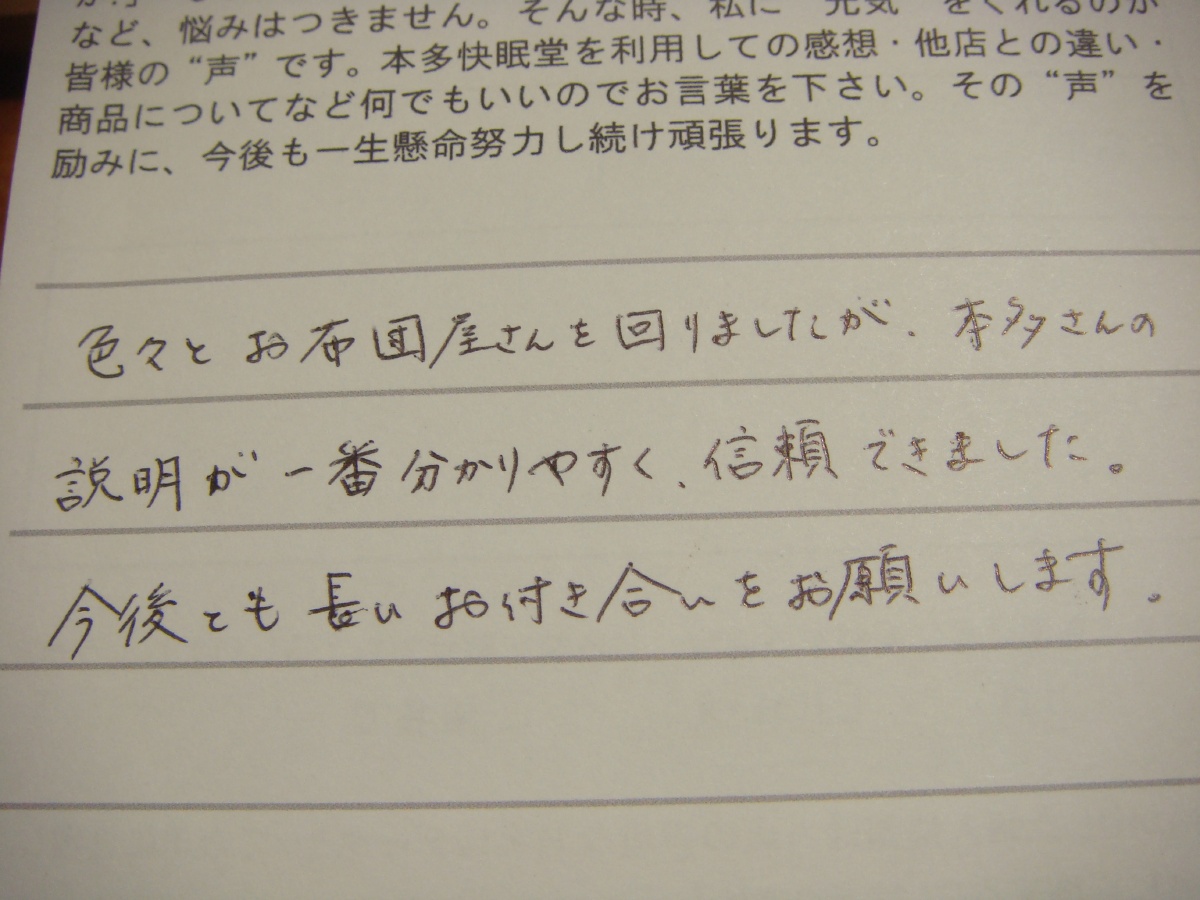 など、悩みはつきません。そんな時、私に“元気”をくれるのが
皆様の“声”です。本多快眠堂を利用しての感想・他店との違い・
商品についてなど何でもいいのでお言葉を下さい。その“声”を
励みに、今後も一生懸命努力し続け頑張ります。
色々とお布団屋さんを回りましたが、本多さんの
説明が一番分かりやすく、信頼できました。
今後とも長いお付き合いをお願いします。